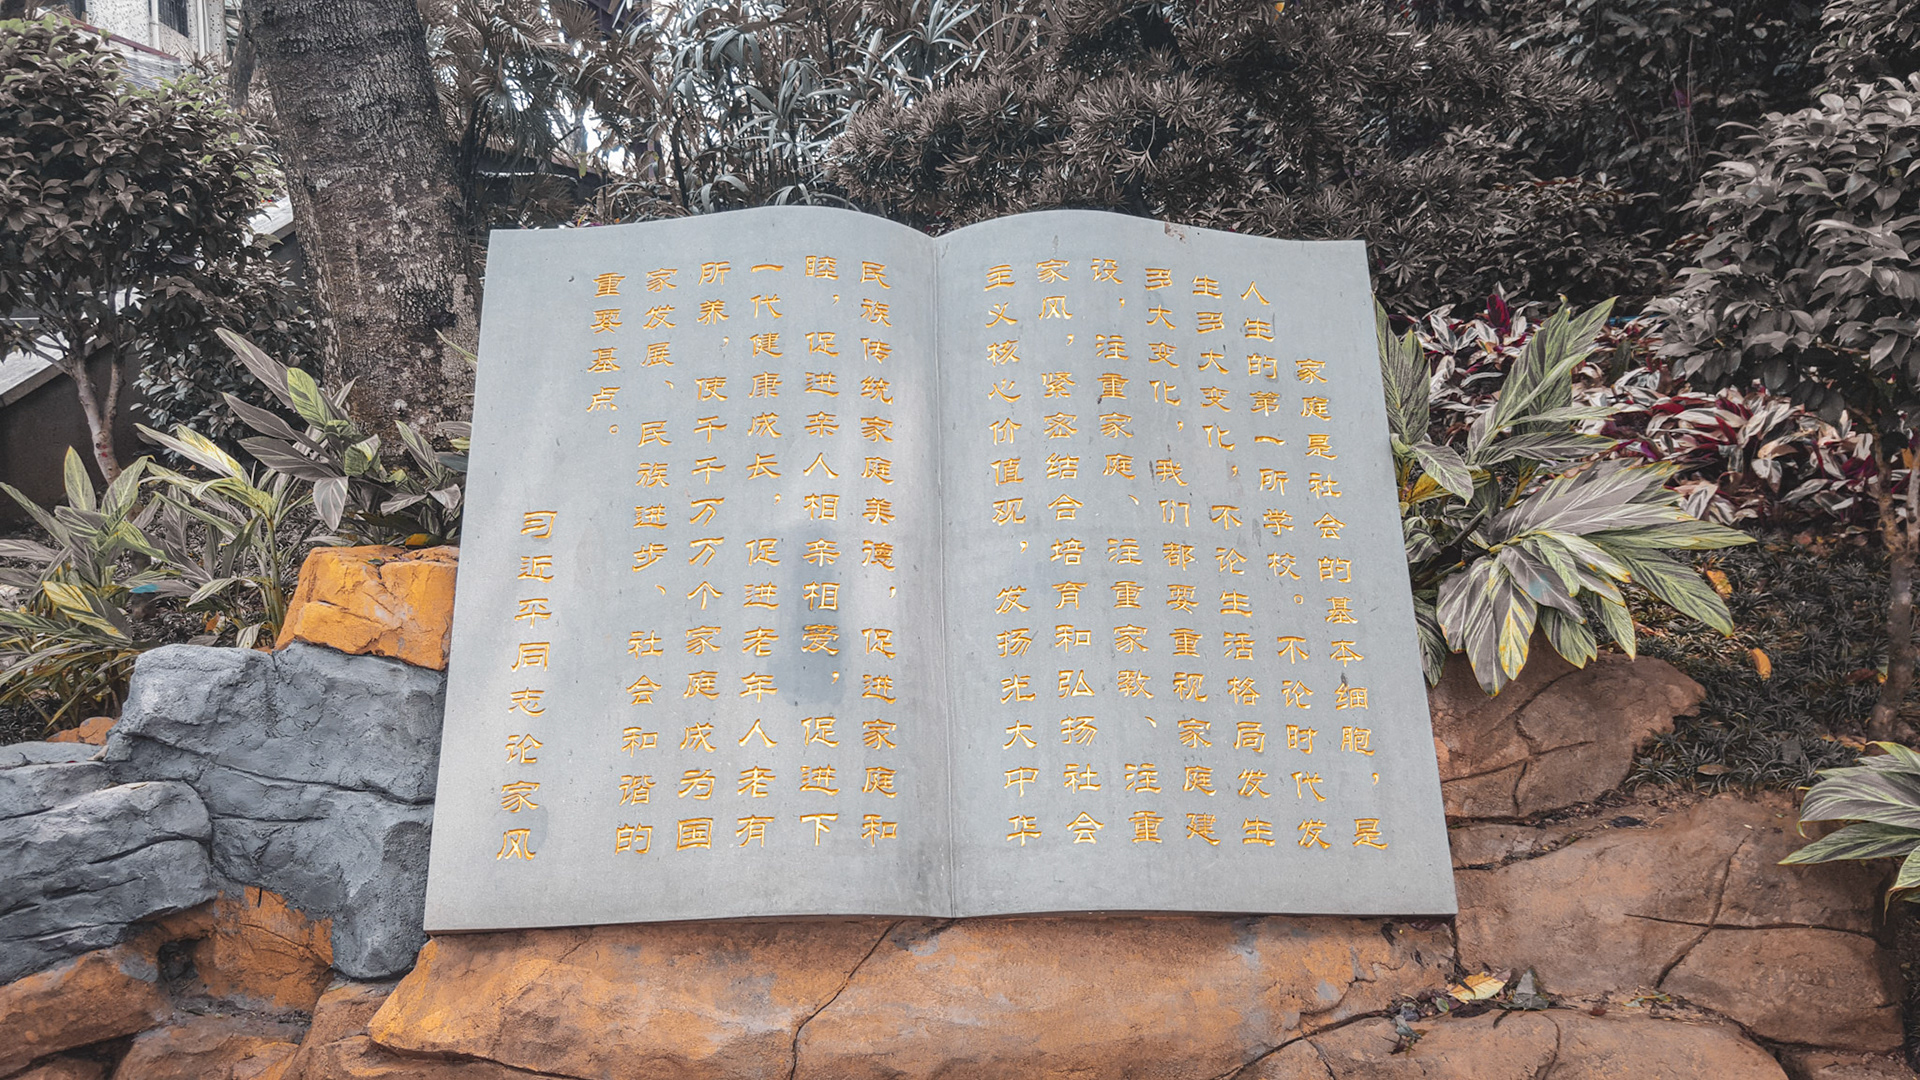 家庭是社会的基本细胞，是
人生的第一所学校。不论时代发
生多大变化，不论生活格局发生
多大变化，我们都要重视家庭建
设，注重家庭、注重家教、注重
家风，紧密结合培育和弘扬社会
主义核心价值观，发扬光大中华
民族传统家庭美德，促进家庭和
睦，促进亲人相亲相爱，促进下
一代健康成长，促进老年人老有
所养，使千千万万个家庭成为国
家发展、民族进步、社会和谐的
重要基点。
习近平同志论家风